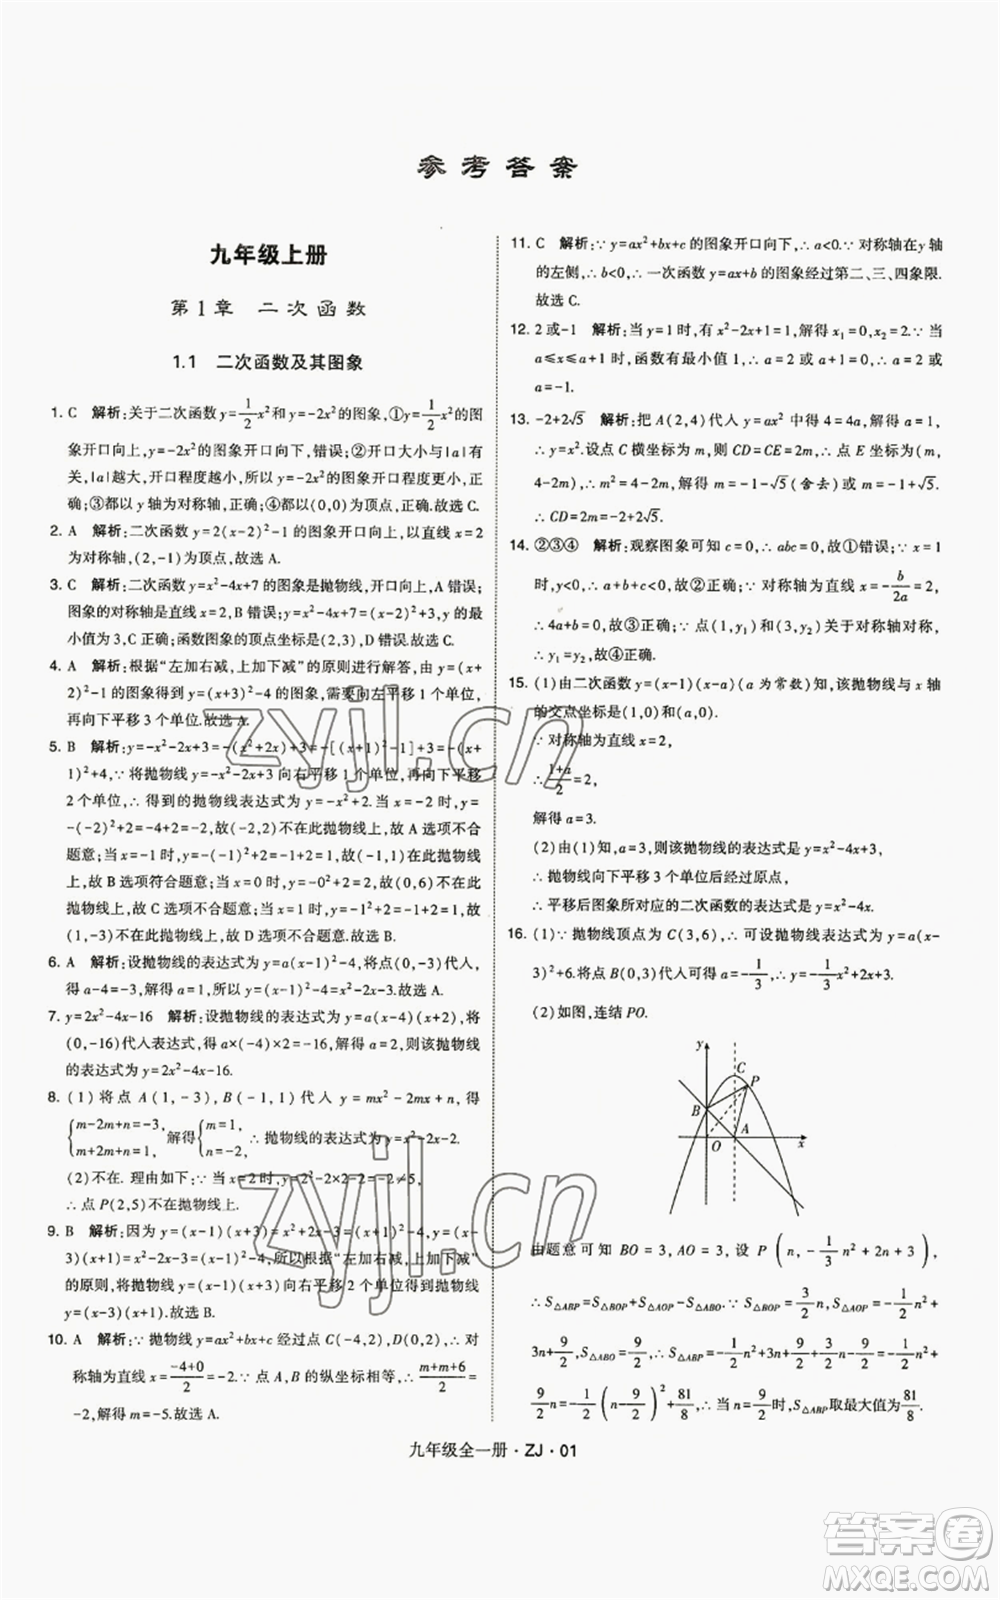 参考答案
九年级上册
第1章 二次函数
1.1 二次函数及其图象
1. C 解析:关于二次函数y=1/2x²和y=-2x²的图象,①y=1/2x²的图
象开口向上,y=-2x²的图象开口向下,错误;②开口大小与|a|有
关,|a|越大,开口程度越小,所以y=-2x²的图象开口程度更小,正
确;③都以y轴为对称轴,正确;④都以(0,0)为顶点,正确.故选C.
2. A 解析:二次函数y=2(x-2)²-1的图象开口向上,以直线x=2
为对称轴,(2,-1)为顶点.故选A.
3. C 解析:二次函数y=x²-4x+7的图象是抛物线,开口向上,A错误;
图象的对称轴是直线x=2,B错误;y=x²-4x+7=(x-2)²+3,y的最
小值为3,C正确;函数图象的顶点坐标是(2,3),D错误.故选C.
4. A 解析:根据“左加右减,上加下减”的原则进行解答,由y=(x+
2)²-1的图象得到y=(x+3)²-4的图象,需要向左平移1个单位,
再向下平移3个单位.故选A.
5. B 解析:y=-x²-2x+3=-(x²+2x)+3=-[(x+1)²-1]+3=-(x+
1)²+4,∵将抛物线y=-x²-2x+3向右平移1个单位,再向下平移
2个单位,∴得到的抛物线表达式为y=-x²+2.当x=-2时,y=
-(-2)²+2=-4+2=-2,故(-2,2)不在此抛物线上,故A选项不合
题意;当x=-1时,y=-(-1)²+2=-1+2=1,故(-1,1)在此抛物线
上,故B选项符合题意;当x=0时,y=-0²+2=2,故(0,6)不在此抛
物线上,故C选项不合题意;当x=1时,y=-1²+2=-1+2=1,故
(1,-3)不在此抛物线上,故D选项不合题意.故选B.
6. A 解析:设抛物线的表达式为y=a(x-1)²-4,将点(0,-3)代入,
得a-4=-3,解得a=1,所以y=(x-1)²-4.故选A.
7. y=2x²-4x-16 解析:设抛物线的表达式为y=a(x-4)(x+2),将
(0,-16)代入表达式,得a×(-4)×2=-16,解得a=2,则该抛物线
的表达式为y=2x²-4x-16.
8. (1)将点A(1,-3),B(-1,1)代入y=mx²-2mx+n,得
{m-2m+n=-3, m+2m+n=1, 解得{m=1, n=-2, ∴抛物线的表达式为y=x²-2x-2.
(2)不在.理由如下:∵当x=2时,y=2²-2×2-2=-2≠5,
∴点P(2,5)不在抛物线上.
9. B 解析:因为y=(x-1)(x+3)=x²+2x-3=(x+1)²-4,y=(x-
3)(x+1)=x²-2x-3=(x-1)²-4,所以根据“左加右减,上加下减”
的原则,将抛物线y=(x-1)(x+3)向右平移2个单位得到抛物线
y=(x-3)(x+1).故选B.
10. A 解析:∵抛物线y=ax²+bx+c经过点C(-4,2),D(0,2),∴对
称轴为直线x=(-4+0)/2=-2.∵点A,B的纵坐标相等,∴(m+m+6)/2=
-2,解得m=-5.故选A.
11. C 解析:∵y=ax²+bx+c的图象开口向下,∴a<0.∵对称轴在y轴
的左侧,∴b<0,∴一次函数y=ax+b的图象经过第二、三、四象限.
故选C.
12. 2或-1 解析:当y=1时,有x²-2x+1=1,解得x₁=0,x₂=2.∵当
a≤x≤a+1时,函数有最小值1,∴a=2或a+1=0,∴a=2或
a=-1.
13. -2+2√5 解析:把A(2,4)代入y=ax²中得4=4a,解得a=1,
∴y=x².设点C横坐标为m,则CD=CE=2m,∴点E坐标为(m,
4-2m),∴m²=4-2m,解得m=-1-√5(舍去)或m=-1+√5.
∴CD=2m=-2+2√5.
14. ②③④ 解析:观察图象可知c=0,∴abc=0,故①错误;∵x=1
时,y>0,∴a+b+c>0,故②正确;∵对称轴为直线x=-b/2a=2,
∴4a+b=0,故③正确;∵点(1,y₁)和(3,y₂)关于对称轴对称,
∴y₁=y₂,故④正确.
15. (1)由二次函数y=(x-1)(x-a)(a为常数)知,该抛物线与x轴
的交点坐标是(1,0)和(a,0).
∵对称轴为直线x=2,
∴(1+a)/2=2,
解得a=3.
(2)由(1)知,a=3,则该抛物线的表达式为y=x²-4x+3,
∴抛物线向下平移3个单位后经过原点,
∴平移后图象所对应的二次函数的表达式为y=x²-4x.
16. (1)∵抛物线顶点为C(3,6),∴可设抛物线表达式为y=a(x-
3)²+6.将点B(0,3)代入可得a=-1/3,∴y=-1/3x²+2x+3.
(2)如图,连结PO.
y
C
P
B
O
A
x
由题意可知BO=3,AO=3,设P(n,-1/3n²+2n+3),
∴S△ABP=S△BOP+S△AOP-S△ABO.∵S△BOP=3/2n,S△AOP=-1/2n²+
3n+9/2,S△ABO=9/2,∴S△ABP=3/2n-1/2n²+3n+9/2-9/2=-1/2n²+
9/2n=-1/2(n-9/2)²+81/8,∴当n=9/2时,S△ABP取最大值为81/8.
九年级全一册·ZJ·01
zyjl.cn
zyjl.cn
答案卷
MXQE.COM